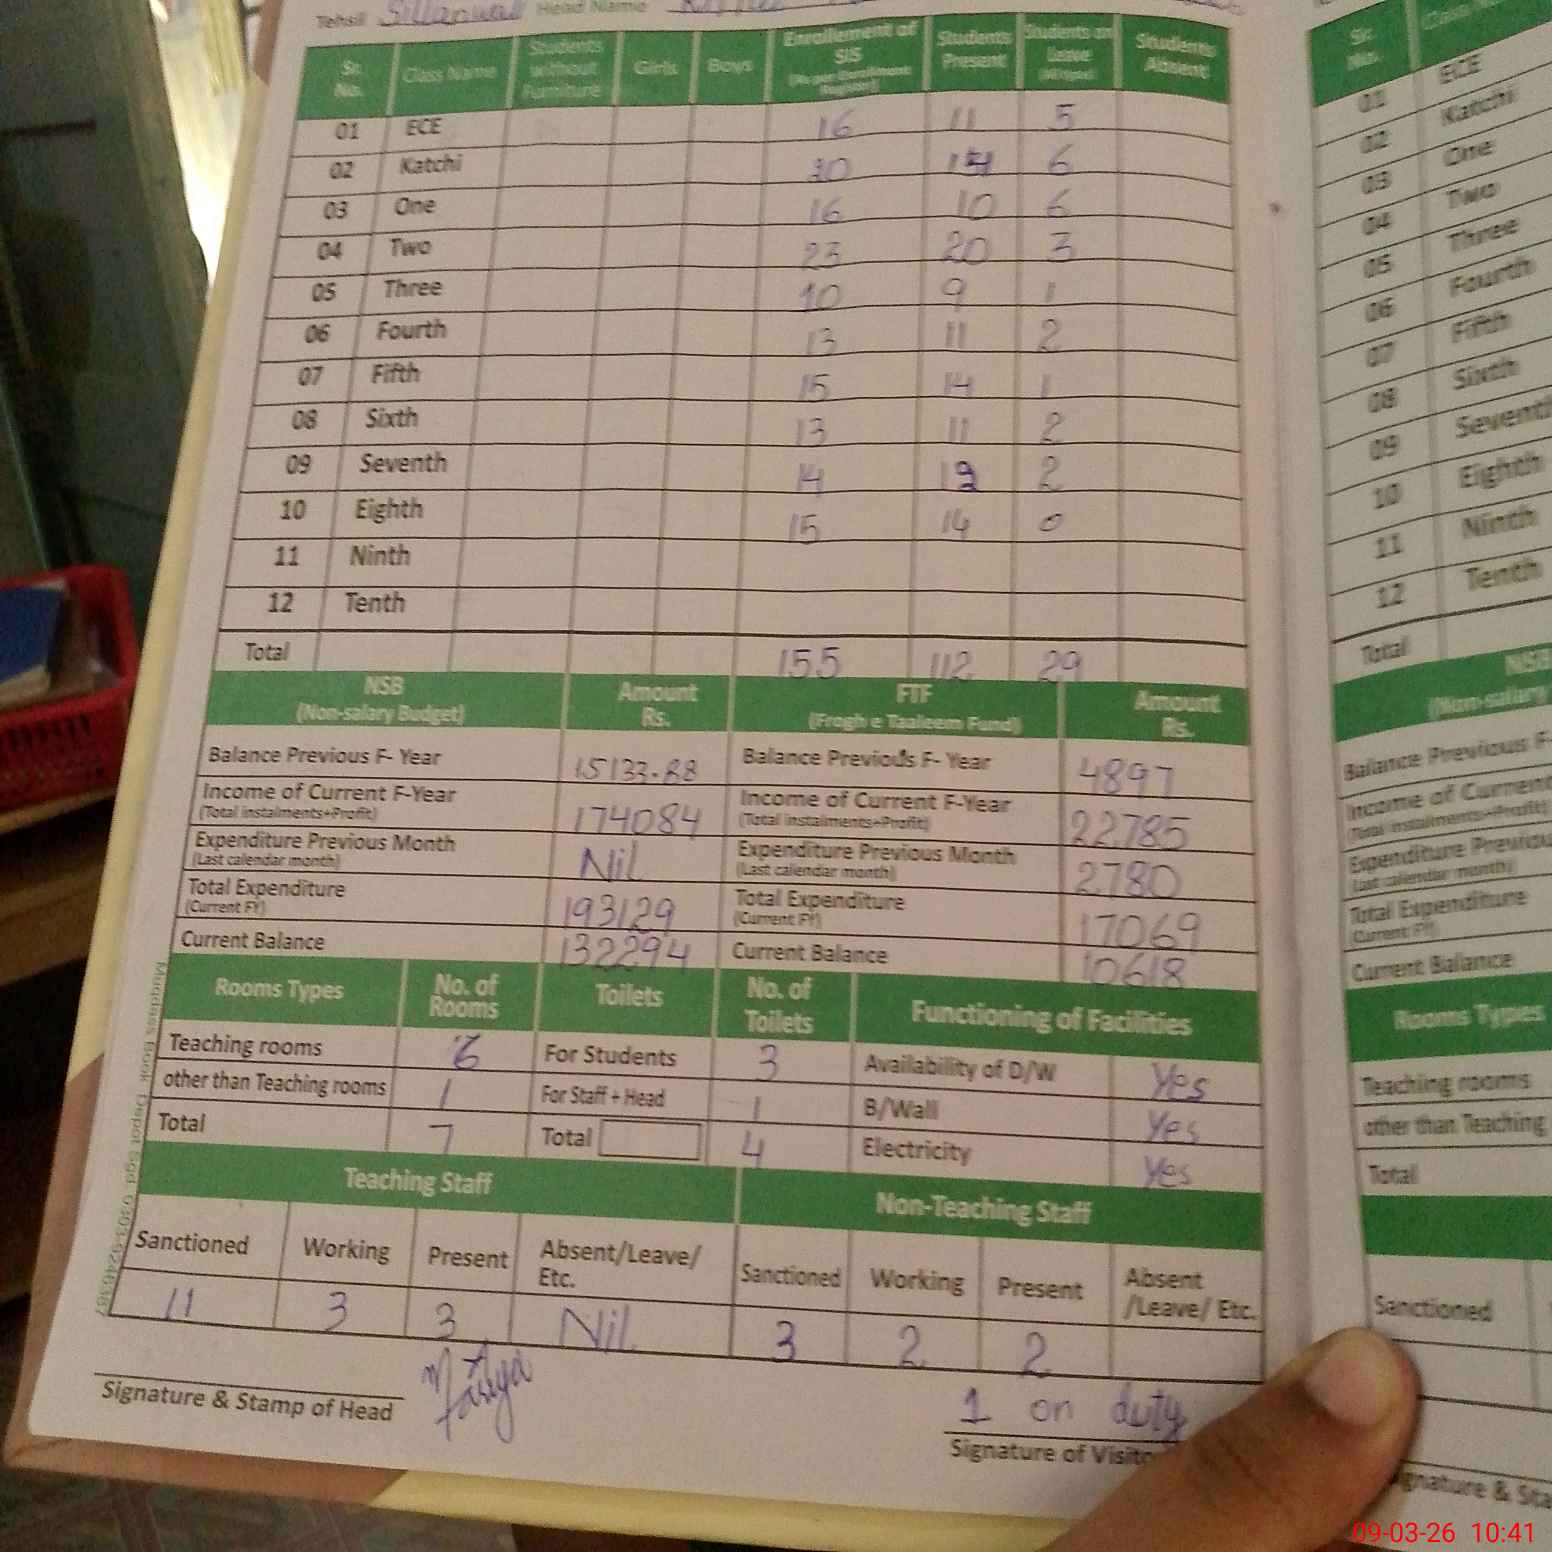 Tehsil Sillanwali Head Name
Sr. No. Class Name Students without Furniture Girls Boys Enrollement of SIS Students Present Students on Leave Students Absent
01 ECE 16 11 5
02 Katchi 20 14 6
03 One 16 10 6
04 Two 23 20 3
05 Three 10 9 1
06 Fourth 13 11 2
07 Fifth 15 14 1
08 Sixth 13 11 2
09 Seventh 14 12 2
10 Eighth 15 14 0
11 Ninth
12 Tenth
Total 155 112 29
NSB (Non-salary Budget) Amount Rs. FTF (Frogh e Taaleem Fund) Amount Rs.
Balance Previous F- Year 15133.88 Balance Previous F- Year 4897
Income of Current F-Year 174084 Income of Current F-Year 22785
(Total instalments+Profit) (Total instalments+Profit)
Expenditure Previous Month Nil Expenditure Previous Month 2780
(Last calendar month) (Last calendar month)
Total Expenditure 193129 Total Expenditure 17069
(Current FY) (Current FY)
Current Balance 132294 Current Balance 10618
Rooms Types No. of Rooms Toilets No. of Toilets Functioning of Facilities
Teaching rooms 6 For Students 3 Availability of D/W Yes
other than Teaching rooms 1 For Staff + Head 1 B/Wall Yes
Total 7 Total 4 Electricity Yes
Teaching Staff Non-Teaching Staff
Sanctioned Working Present Absent/Leave/ Etc. Sanctioned Working Present Absent /Leave/ Etc.
11 3 3 Nil 3 2 2
1 on duty
Signature & Stamp of Head Signature of Visito
Muqddas Book Depot Sgd.
Sr. No.
01 ECE
02 Katchi
03 One
04 Two
05 Three
06 Fourth
07 Fifth
08 Sixth
09 Seventh
10 Eighth
11 Ninth
12 Tenth
Total
NSB
(Non-salary
Balance Previous F-
Income of Current
(Total instalments+Profit)
Expenditure Previou
(Last calendar month)
Total Expenditure
(Current FY)
Current Balance
Rooms Types
Teaching rooms
other than Teaching
Total
Sanctioned
gnature & Sta
09-03-26 10:41